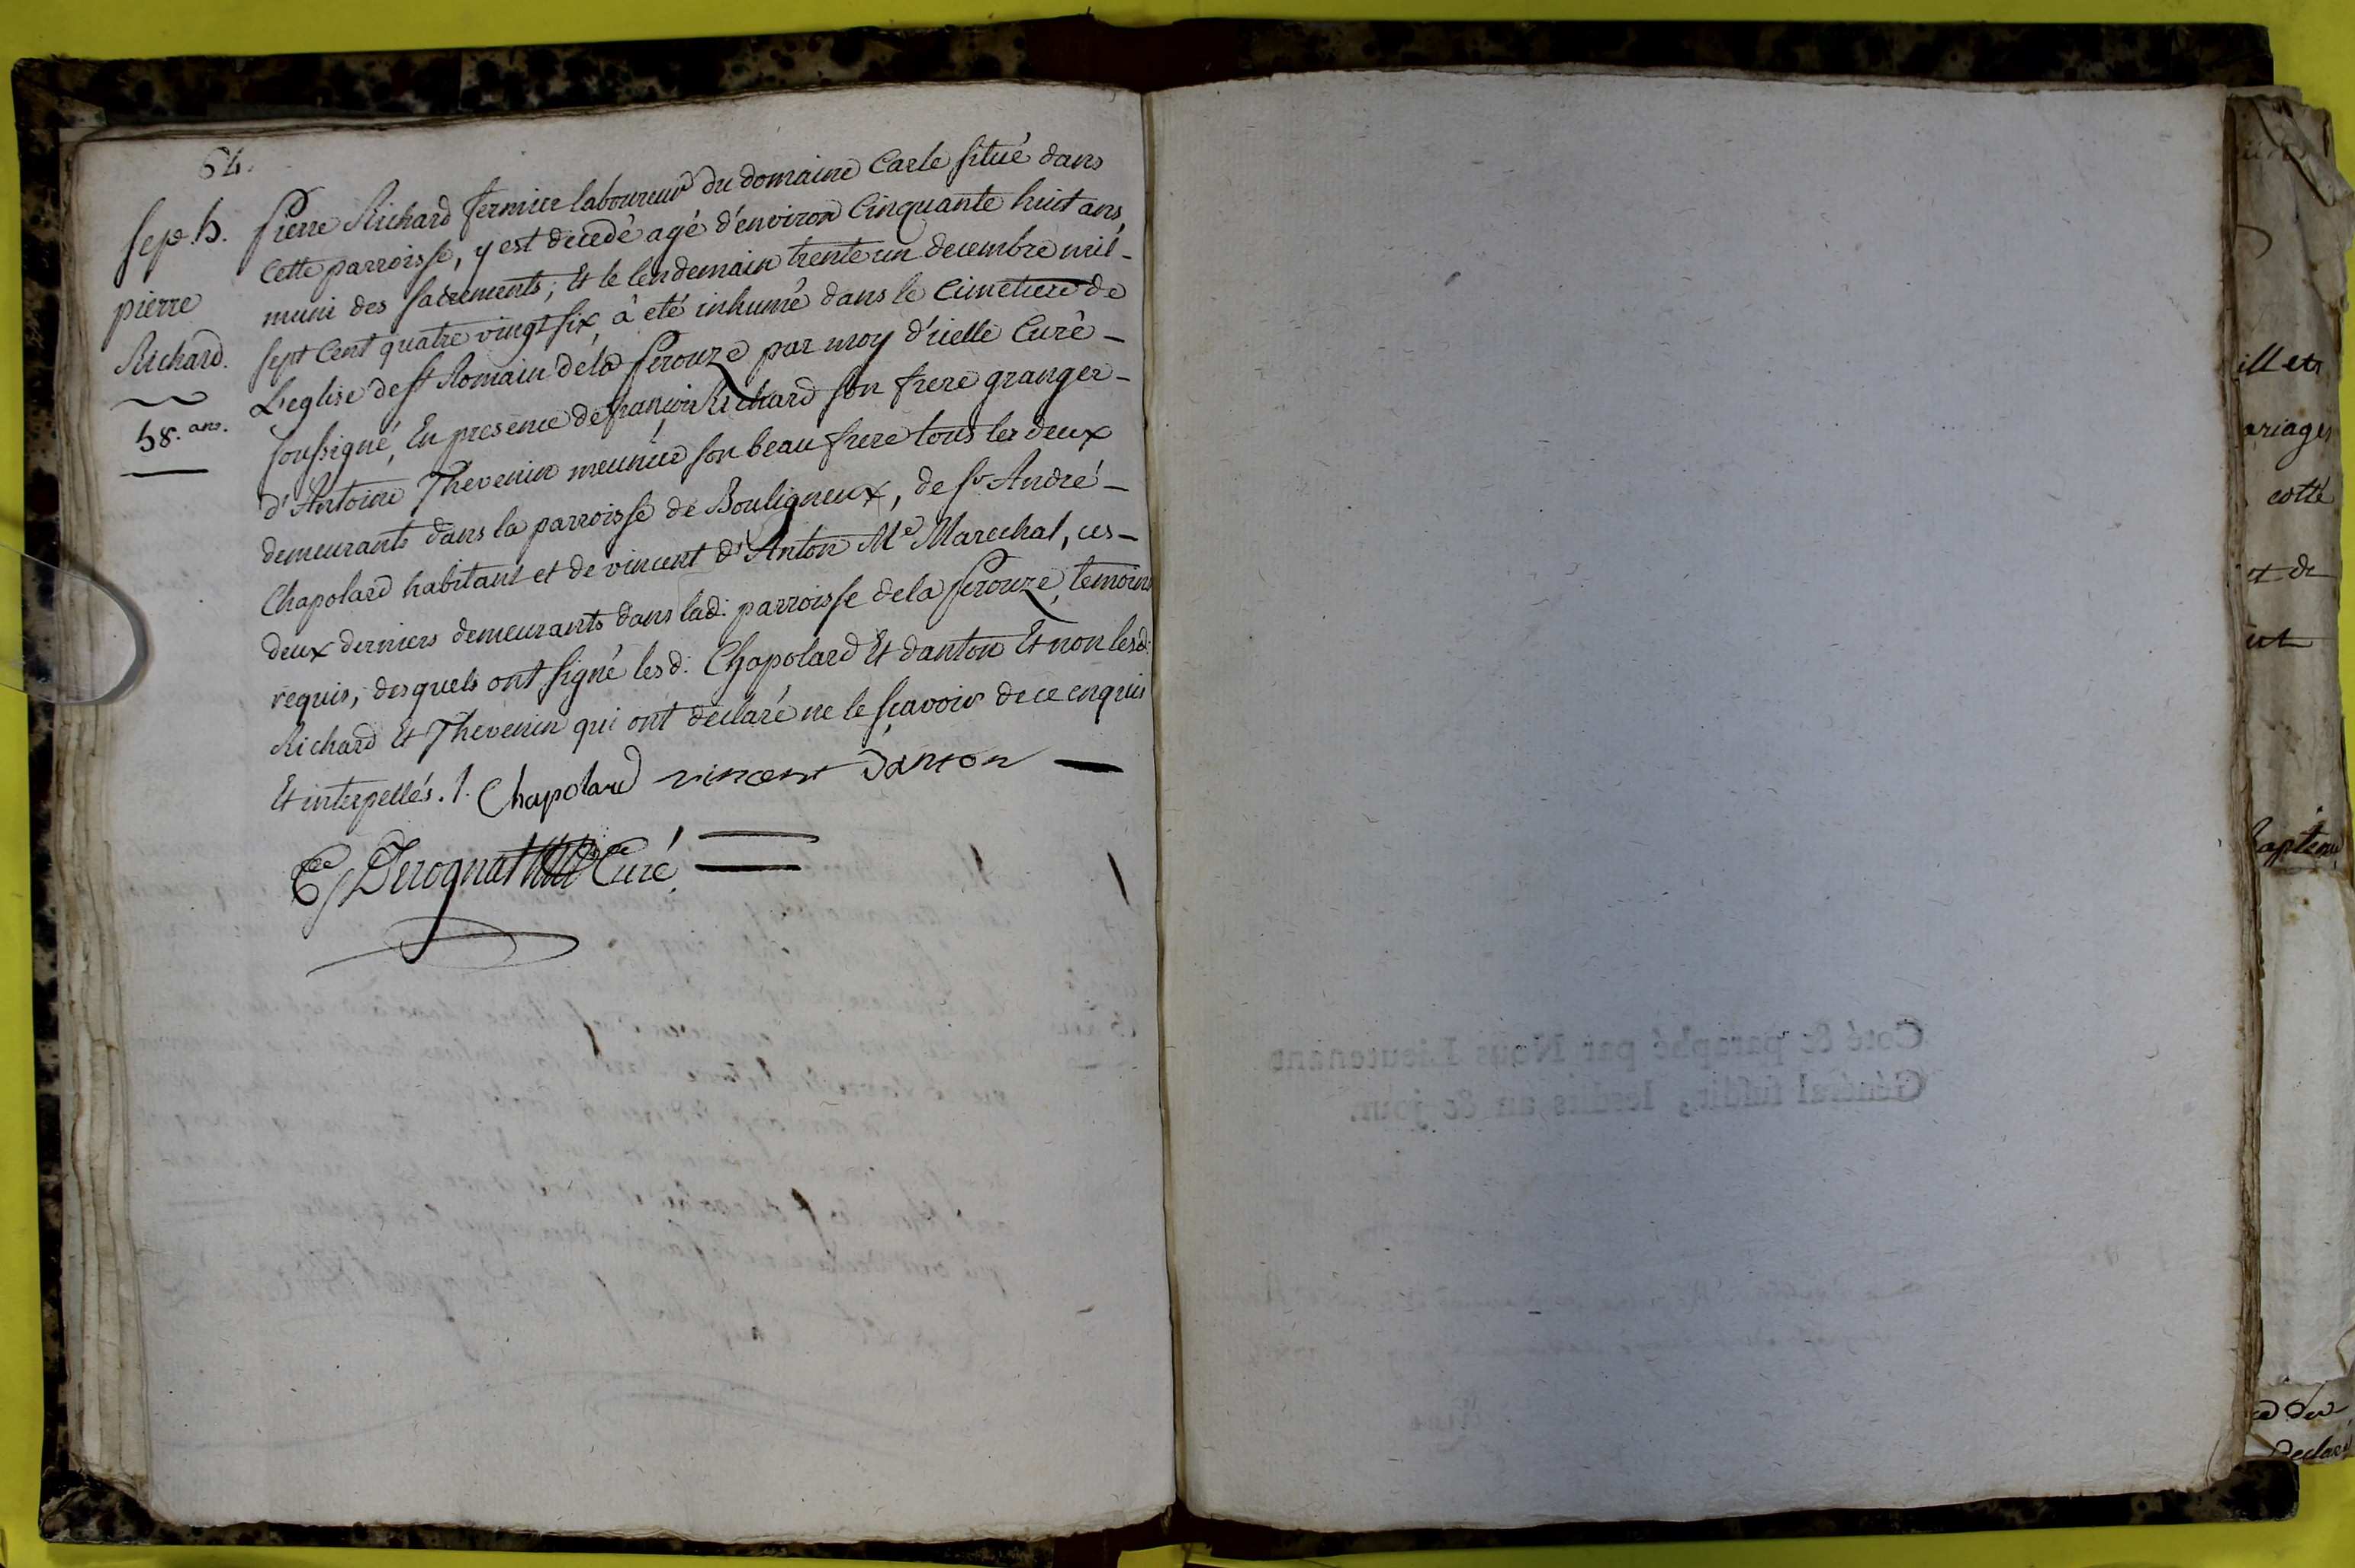 64.
Sep. 5.
pierre
Richard.
58. ans.
Pierre Richard fermier laboureur du domaine Carle situé dans
cette parroisse, y est decedé agé d'environ Cinquante huit ans,
muni des sacrements; Et le lendemain trente un decembre mil-
sept Cent quatre vingt six, à eté inhumé dans le Cimetiere de
L'eglise de st Romain dela Perouze par moy d'icelle Curé-
soussigné, En presence de françois Richard son frere granger-
d'Antoine Thevenin meunier son beau frere tous les deux
demeurants dans la parroisse de Bouligneux, de sr André-
Chapolard habitant et de vincent d'Anton Me Marechal, ces-
deux derniers demeurants dans lad: parroisse dela Perouze, temoins
requis, desquels ont signé lesd: Chapolard Et danton Et non lesd:
Richard Et Thevenin qui ont declaré ne le sçavoir de ce enquis
Et interpellés. /. Chapolard vincent danton
Derognat Curé
Coté & paraphé par Nous Lieutenant
Général susdit, lesdits an & jour.
ill et
ariages
cotté
et de